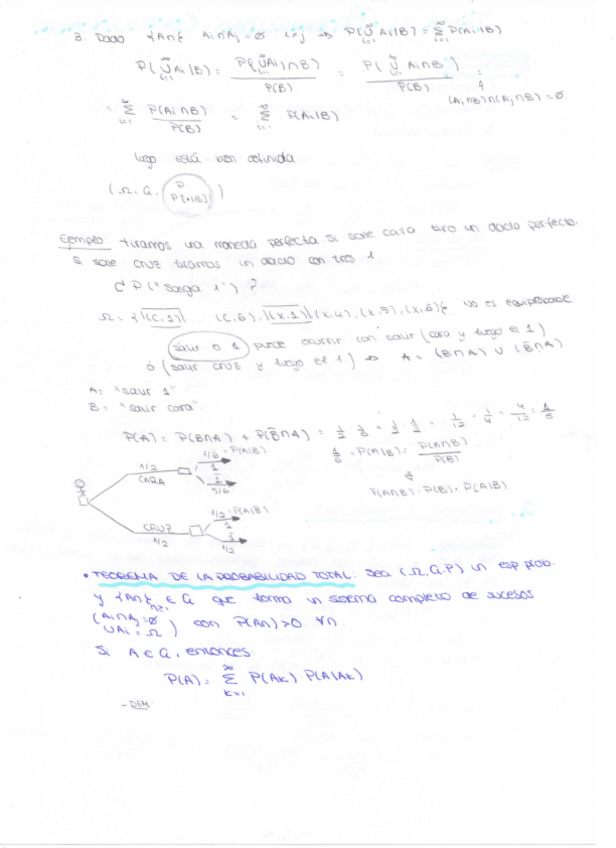 3. Dado {An} Ai∩Aj=ø i≠j ⇒ P(∪Ai|B) = Σ P(Ai|B)
P(∪Ai|B) = P((∪Ai)∩B)/P(B) = P(∪Ai∩B)/P(B) =
(Ai∩B)∩(Aj∩B)=ø
= Σ P(Ai∩B)/P(B) = Σ P(Ai|B)
luego está bien definida
(Ω, a, P P[•|B])
Ejemplo: tiramos una moneda perfecta si sale cara tiro un dado perfecto.
Si sale cruz tiramos un dado con tres 1
¿P("salga 1")?
Ω = {(C,1) (C,6), (X,1) (X,4), (X,5), (X,6)} No es equiprobable
salir a 1 puede ocurrir con salir (cara y luego el 1)
ó (salir cruz y luego el 1) ⇒ A = (B∩A) ∪ (B̄∩A)
A = "salir 1"
B = "salir cara"
P(A) = P(B∩A) + P(B̄∩A) = 1/2 · 1/6 + 1/2 · 1/2 = 1/12 + 1/4 = 4/12 = 1/3
1/6 = P(A|B) = P(A∩B)/P(B)
P(A∩B) = P(B) · P(A|B)
1/2 CARA 1/6 = P(A|B) 1
1̄ 5/6
CRUZ 1/2 1/2 = P(A|B̄) 1
1̄ 1/2
• TEOREMA DE LA PROBABILIDAD TOTAL: Sea (Ω, a, P) un esp. prob.
y {An}n≥1 ∈ a que forma un sistema completo de sucesos
(Ai∩Aj=ø ∪Ai=Ω) con P(An)>0 ∀n.
Si A ∈ a, entonces
P(A) = Σ P(Ak) · P(A|Ak)
- DEM: